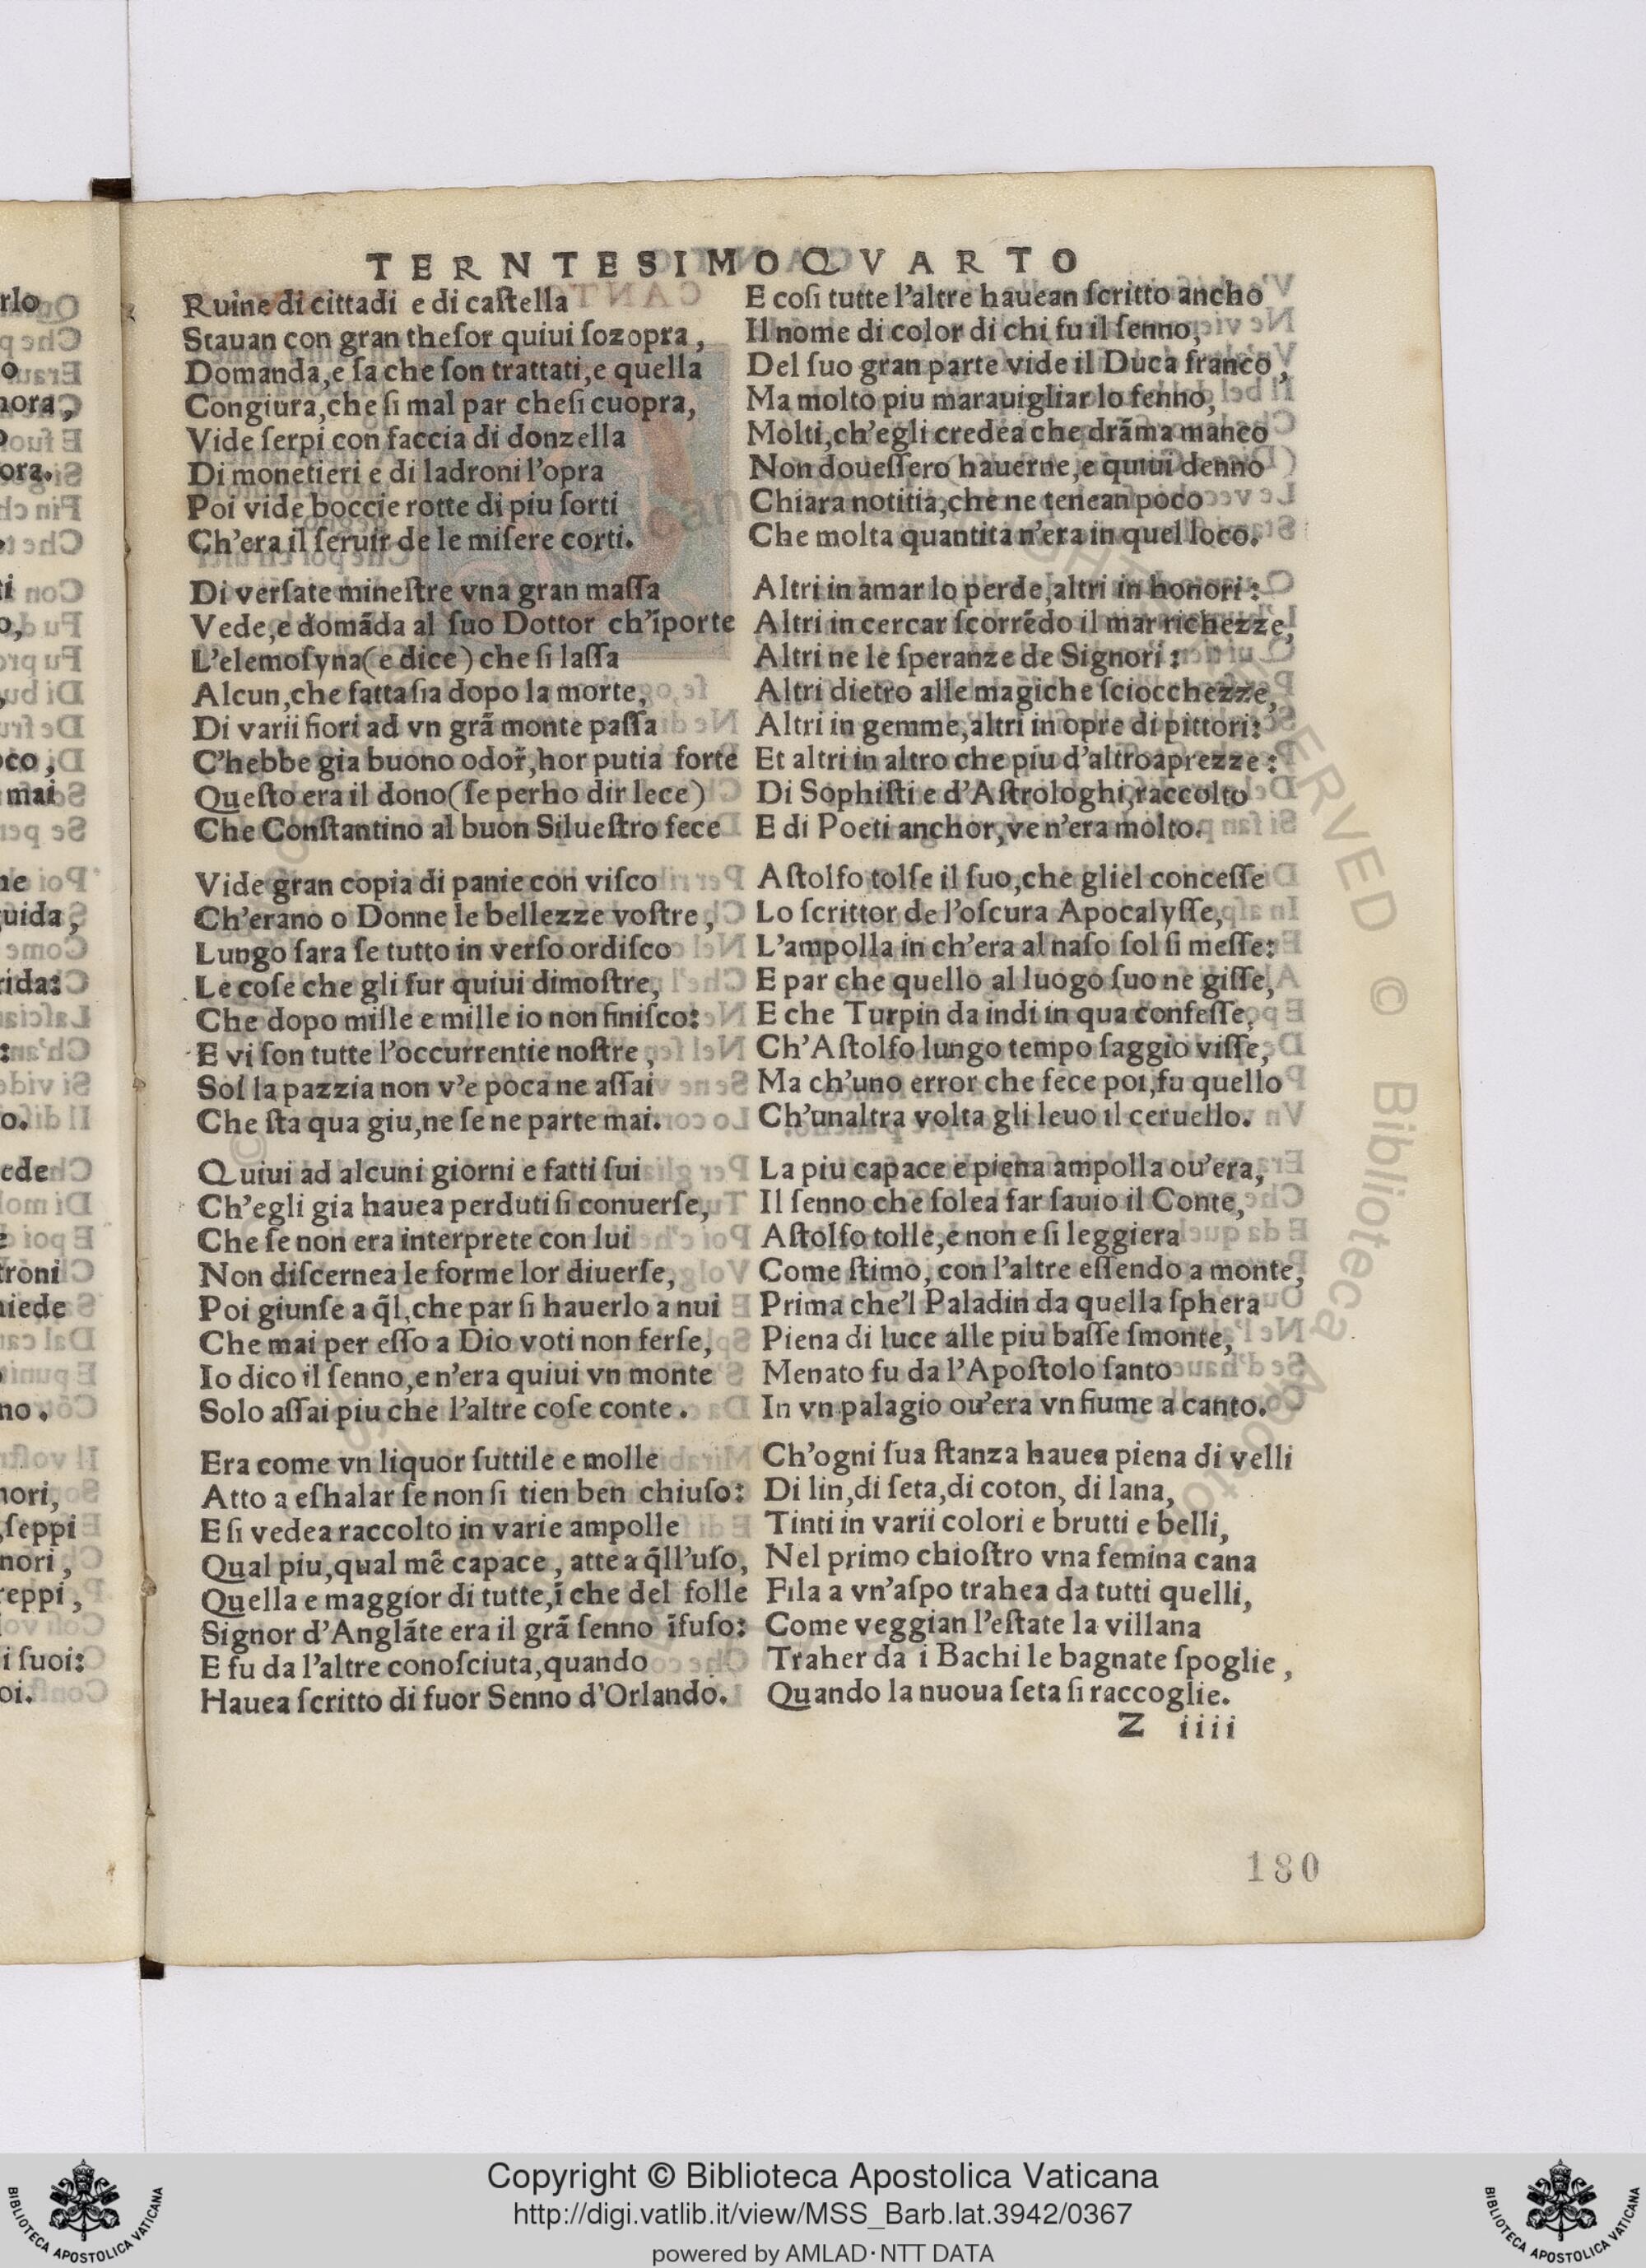 TERNTESIMOQVARTO
Ruine di cittadi e di caſtella
Stauan con gran theſor quiui ſozopra,
Domanda, e ſa che ſon trattati, e quella
Congiura, che ſi mal par cheſi cuopra,
Vide ſerpi con faccia di donzella
Di monetieri e di ladroni l'opra
Poi vide boccie rotte di piu ſorti
Ch'era il ſeruir de le miſere corti.
Di verſate mineſtre vna gran maſſa
Vede, e domãda al ſuo Dottor ch'ĩporte
L'elemoſyna (e dice) che ſi laſſa
Alcun, che fatta ſia dopo la morte,
Di varii fiori ad vn grã monte paſſa
C'hebbe gia buono odor̃, hor putia forte
Queſto era il dono (ſe perho dir lece)
Che Conſtantino al buon Silueſtro fece
Vide gran copia di panie con viſco
Ch'erano o Donne le bellezze voſtre,
Lungo ſara ſe tutto in verſo ordiſco
Le coſe che gli fur quiui dimoſtre,
Che dopo mille e mille io non finiſco:
E vi ſon tutte l'occurrentie noſtre,
Sol la pazzia non v'e poca ne aſſai
Che ſta qua giu, ne ſe ne parte mai.
Quiui ad alcuni giorni e fatti ſui
Ch'egli gia hauea perduti ſi conuerſe,
Che ſe non era interprete con lui
Non diſcernea le forme lor diuerſe,
Poi giunſe a q̃l, che par ſi hauerlo a nui
Che mai per eſſo a Dio voti non ferſe,
Io dico il ſenno, e n'era quiui vn monte
Solo aſſai piu che l'altre coſe conte.
Era come vn liquor ſuttile e molle
Atto a eſhalar ſe non ſi tien ben chiuſo:
E ſi vedea raccolto in varie ampolle
Qual piu, qual mẽ capace, atte a q̃ll'uſo,
Quella e maggior di tutte, ĩ che del folle
Signor d'Anglãte era il grã ſenno ĩfuſo:
E fu da l'altre conoſciuta, quando
Hauea ſcritto di fuor Senno d'Orlando.
E coſi tutte l'altre hauean ſcritto ancho
Il nome di color di chi fu il ſenno,
Del ſuo gran parte vide il Duca franco,
Ma molto piu marauigliar lo fenno,
Molti, ch'egli credea che drãma manco
Non doueſſero hauerne, e quiui denno
Chiara notitia, che ne tenean poco
Che molta quantita n'era in quel loco.
Altri in amar lo perde, altri in honori:
Altri in cercar ſcorrẽdo il mar richezze,
Altri ne le ſperanze de Signori:
Altri dietro alle magiche ſciocchezze,
Altri in gemme, altri in opre di pittori:
Et altri in altro che piu d'altro aprezze:
Di Sophiſti e d'Aſtrologhi, raccolto
E di Poeti anchor, ve n'era molto.
Aſtolfo tolſe il ſuo, che gliel conceſſe
Lo ſcrittor de l'oſcura Apocalyſſe,
L'ampolla in ch'era al naſo ſol ſi meſſe:
E par che quello al luogo ſuo ne giſſe,
E che Turpin da indi in qua confeſſe,
Ch'Aſtolfo lungo tempo ſaggio viſſe,
Ma ch'uno error che fece poi, fu quello
Ch'unaltra volta gli leuo il ceruello.
La piu capace e piena ampolla ou'era,
Il ſenno che ſolea far ſauio il Conte,
Aſtolfo tolle, e non e ſi leggiera
Come ſtimo, con l'altre eſſendo a monte,
Prima che'l Paladin da quella ſphera
Piena di luce alle piu baſſe ſmonte,
Menato fu da l'Apoſtolo ſanto
In vn palagio ou'era vn fiume a canto.
Ch'ogni ſua ſtanza hauea piena di velli
Di lin, di ſeta, di coton, di lana,
Tinti in varii colori e brutti e belli,
Nel primo chioſtro vna femina cana
Fila a vn'aſpo trahea da tutti quelli,
Come veggian l'eſtate la villana
Traher da i Bachi le bagnate ſpoglie,
Quando la nuoua ſeta ſi raccoglie.
Z iiii
180
Copyright © Biblioteca Apostolica Vaticana
http://digi.vatlib.it/view/MSS_Barb.lat.3942/0367
powered by AMLAD·NTT DATA
BIBLIOTECA APOSTOLICA VATICANA
BIBLIOTECA APOSTOLICA VATICANA